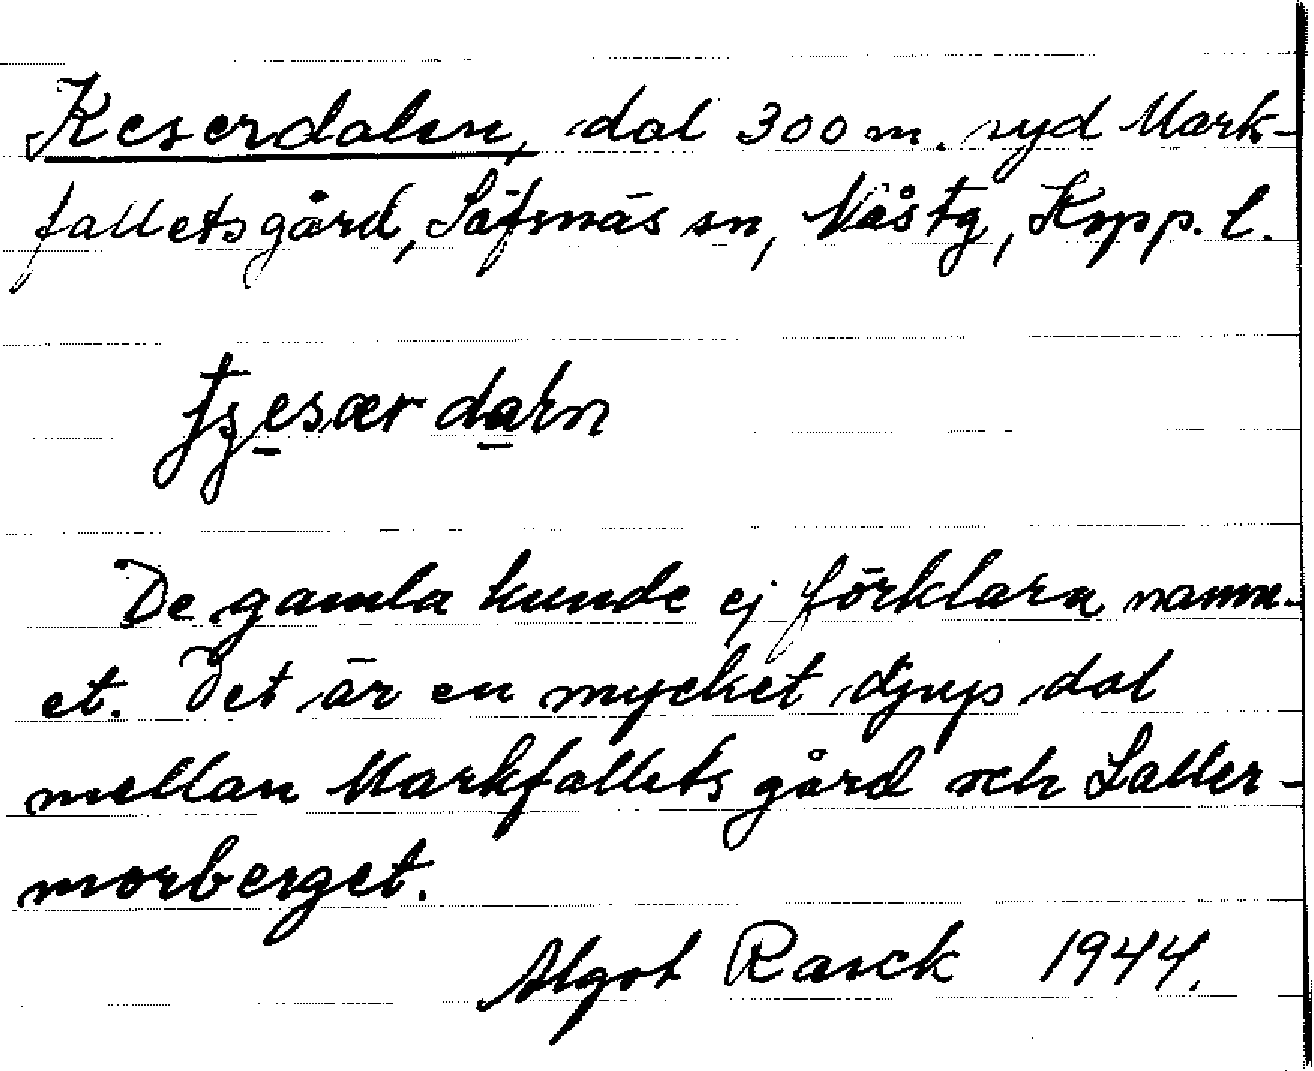 Keserdalen, dal 300 m. syd Mark-
falletsgård, Säfsnäs sn, Våstg, Kopp. l.
De gamla kunde ej förklara namn-
et. Det är en mycket djup dal
mellan Markfallets gård och Laller-
morberget.
Algot Rasck 1944.